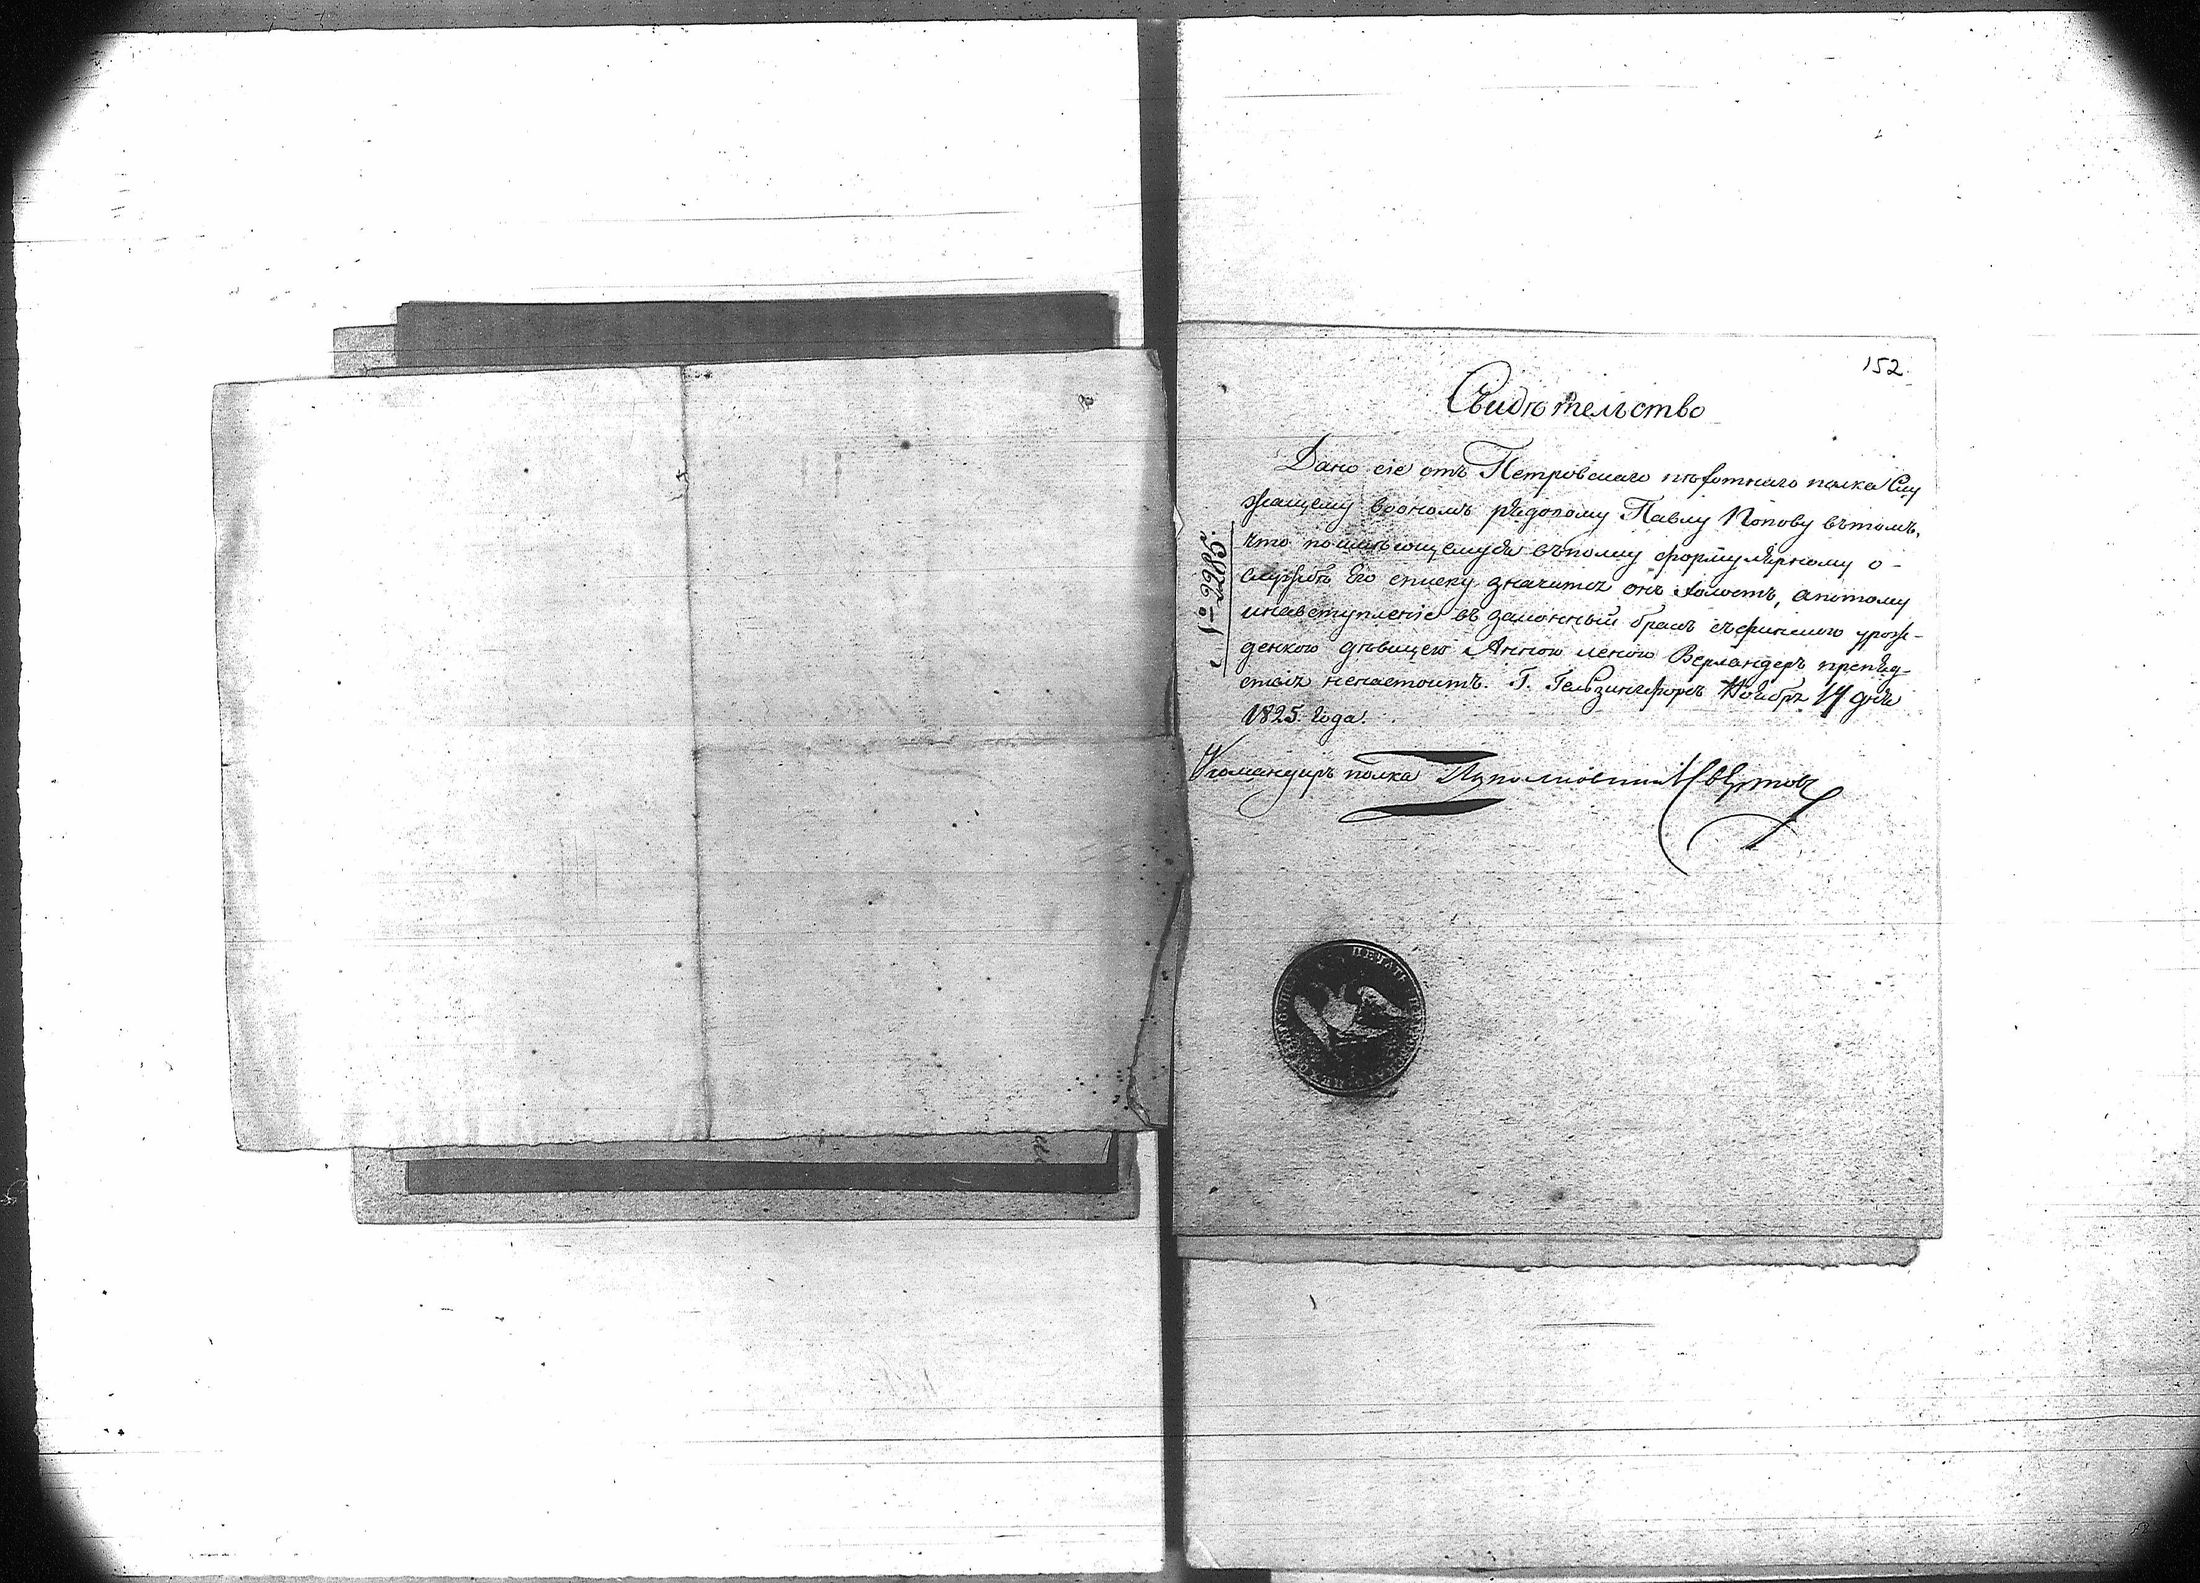 152.
Свидѣтельство
Дано сіе отъ Петровскаго пѣхотнаго полка Слу
жащему воономъ рядовому Павлу Попову вътомъ,
что поимѣющемуся въполку формулярному о-
службѣ Его списку значится онъ холостъ, апотому
инавступленіе въ законный бракъ съфинскою урож-
денкою дѣвицею Анною Леною Верландеръ препяд-
ствія ненастоитъ. Г. Гельзингфорсъ Ноября 14 дня
1825 года.
Командиръ полка Подполковникъ
№ 2986.